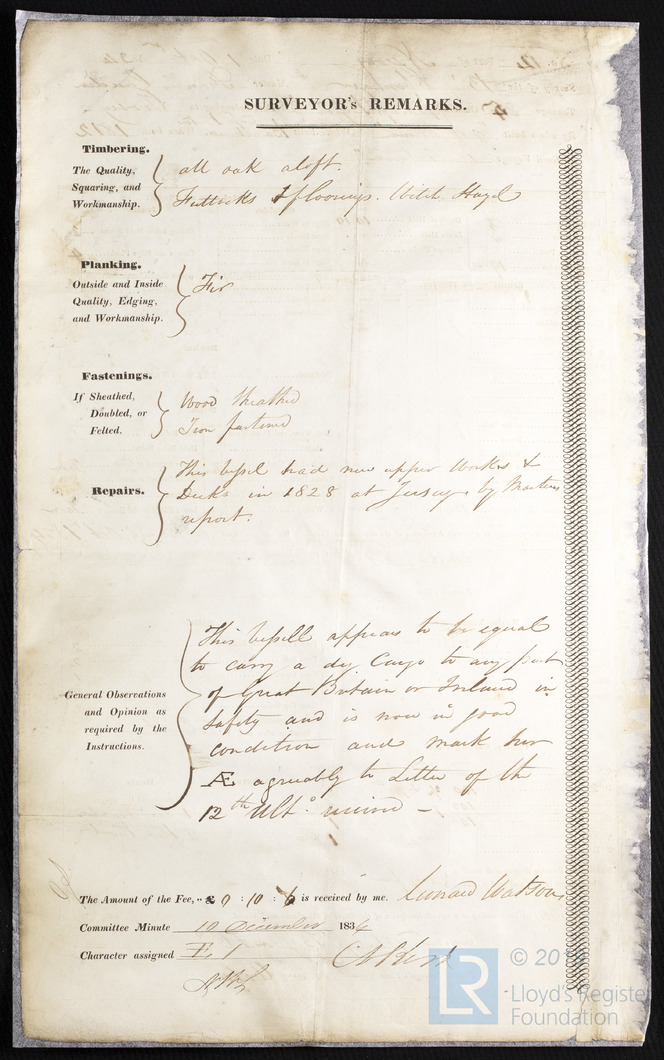 SURVEYOR's REMARKS.
Timbering.
The Quality,
Squaring, and
Workmanship.
all oak aloft.
Futtocks & floorings. Witch Hazel
Planking.
Outside and Inside
Quality, Edging,
and Workmanship.
Fir
Fastenings.
If Sheathed,
Doubled, or
Felted.
Wood sheathed
Iron fastened
Repairs.
This Vessel had new upper Works &
Decks in 1828 at Jersey, by Masters
report.
General Observations
and Opinion as
required by the
Instructions.
This Vessell appears to be equal
to carry a dry Cargo to any part
of Great Britain or Ireland in
safety and is now in good
condition and mark her
Æ agreeably to Letter of the
12th Ulto. received -
The Amount of the Fee, £0 : 10 : 6 is received by me. Leonard Watson
Committee Minute 10 December 1834
Character assigned E. 1
LR
© 201
Lloyd's Register
Foundation